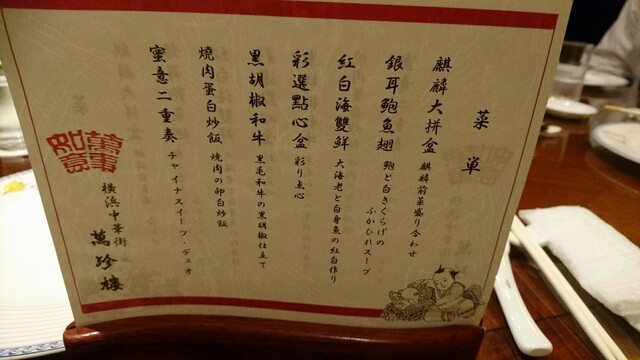 菜単
麒麟大拼盆 麒麟前菜盛り合わせ
銀耳鮑魚翅 鮑と白きくらげの
ふかひれスープ
紅白海雙鮮 大海老と白身魚の紅白作り
彩選點心盆 彩り点心
黒胡椒和牛 黒毛和牛の黒胡椒仕立て
燒肉蛋白炒飯 燒肉の卵白炒飯
蜜意二重奏 チャイナスイーツ・デュオ
萬事如意
横浜中華街 萬珍樓